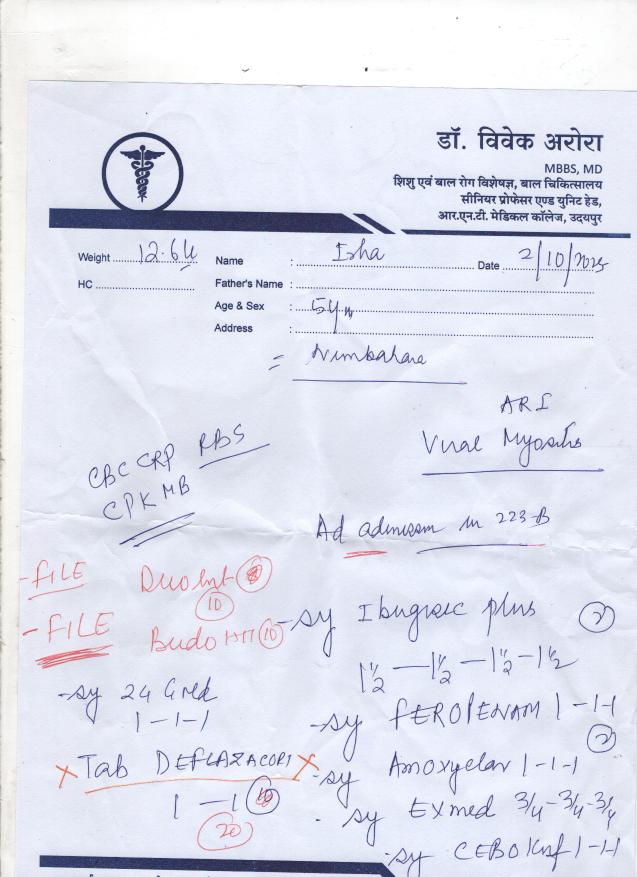 डॉ. विवेक अरोरा
MBBS, MD
शिशु एवं बाल रोग विशेषज्ञ, बाल चिकित्सालय
सीनियर प्रोफेसर एण्ड युनिट हेड,
आर.एन.टी. मेडिकल कॉलेज, उदयपुर
Weight 12.64 Name : Isha Date 2/10/2025
HC Father's Name :
Age & Sex : 5y
Address :
= Nimbahara
ARI
Viral Myositis
CBC CRP RBS
CPK MB
Ad admission in 223-B
- FILE Duolin
10
- FILE Budo 10
- sy Ibugesic plus 2
1½ — 1½ - 1½ - 1½
- sy 1-1-1
- sy FEROPENAM 1-1-1
2
x Tab DEFLAZACORT x
1 — 1
20
- sy Amoxyclav 1-1-1
- sy Exmed 3/4-3/4-3/4
- sy 1-1-1